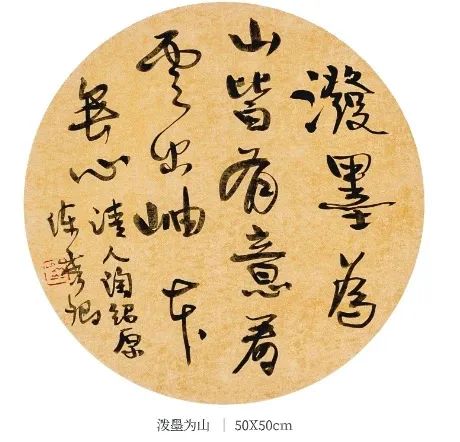 潑墨為
山皆有意看
雲出岫本
無心
清人陶紹原
泼墨为山 | 50X50cm